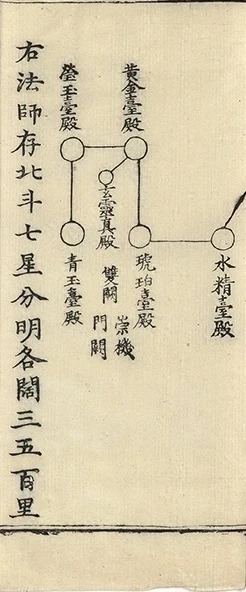 水精臺殿
黃金臺殿
琥珀臺殿
崇機
雙闕
門闕
玄靈真殿
瑩玉臺殿
青玉臺殿
右法師存北斗七星分明各闊三五百里